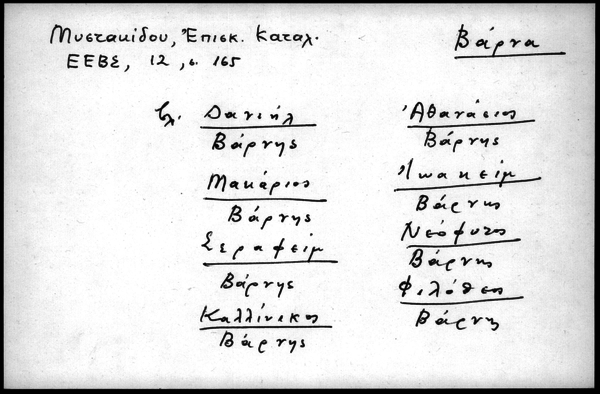 Μυστακίδου, Ἐπισκ. Καταλ.
ΕΕΒΣ, 12, σ. 165
Βάρνα
βλ. Δανιήλ
Βάρνης
Μακάριος
Βάρνης
Σεραφείμ
Βάρνης
Καλλίνικος
Βάρνης
Ἀθανάσιος
Βάρνης
Ἰωακείμ
Βάρνης
Νεόφυτος
Βάρνης
Φιλόθεος
Βάρνης